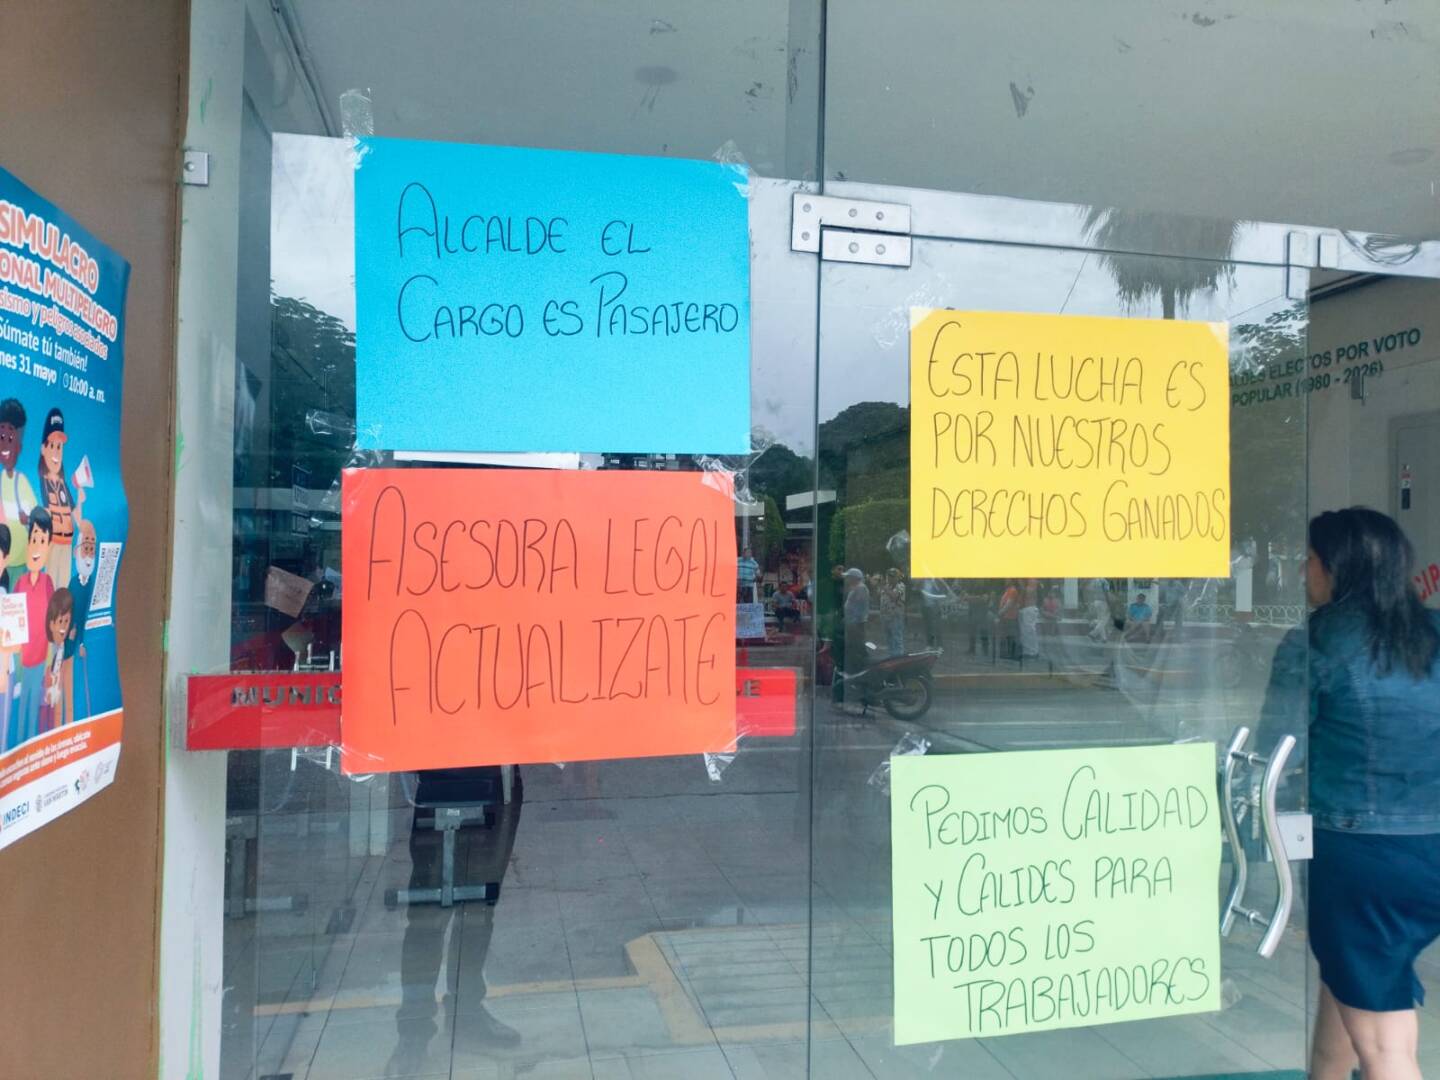 SIMULACRO
ONAL MULTIPELIGRO
sismo y peligros asociados
Súmate tú también!
nes 31 mayo 10:00 a.m.
INDECI
SAN MARTIN
ALCALDE EL
CARGO ES PASAJERO
ASESORA LEGAL
ACTUALIZATE
MUNIC
ESTA LUCHA ES
POR NUESTROS
DERECHOS GANADOS
PEDIMOS CALIDAD
Y CALIDES PARA
TODOS LOS
TRABAJADORES
ALDES ELECTOS POR VOTO
POPULAR (1980 - 2026)
CIPA